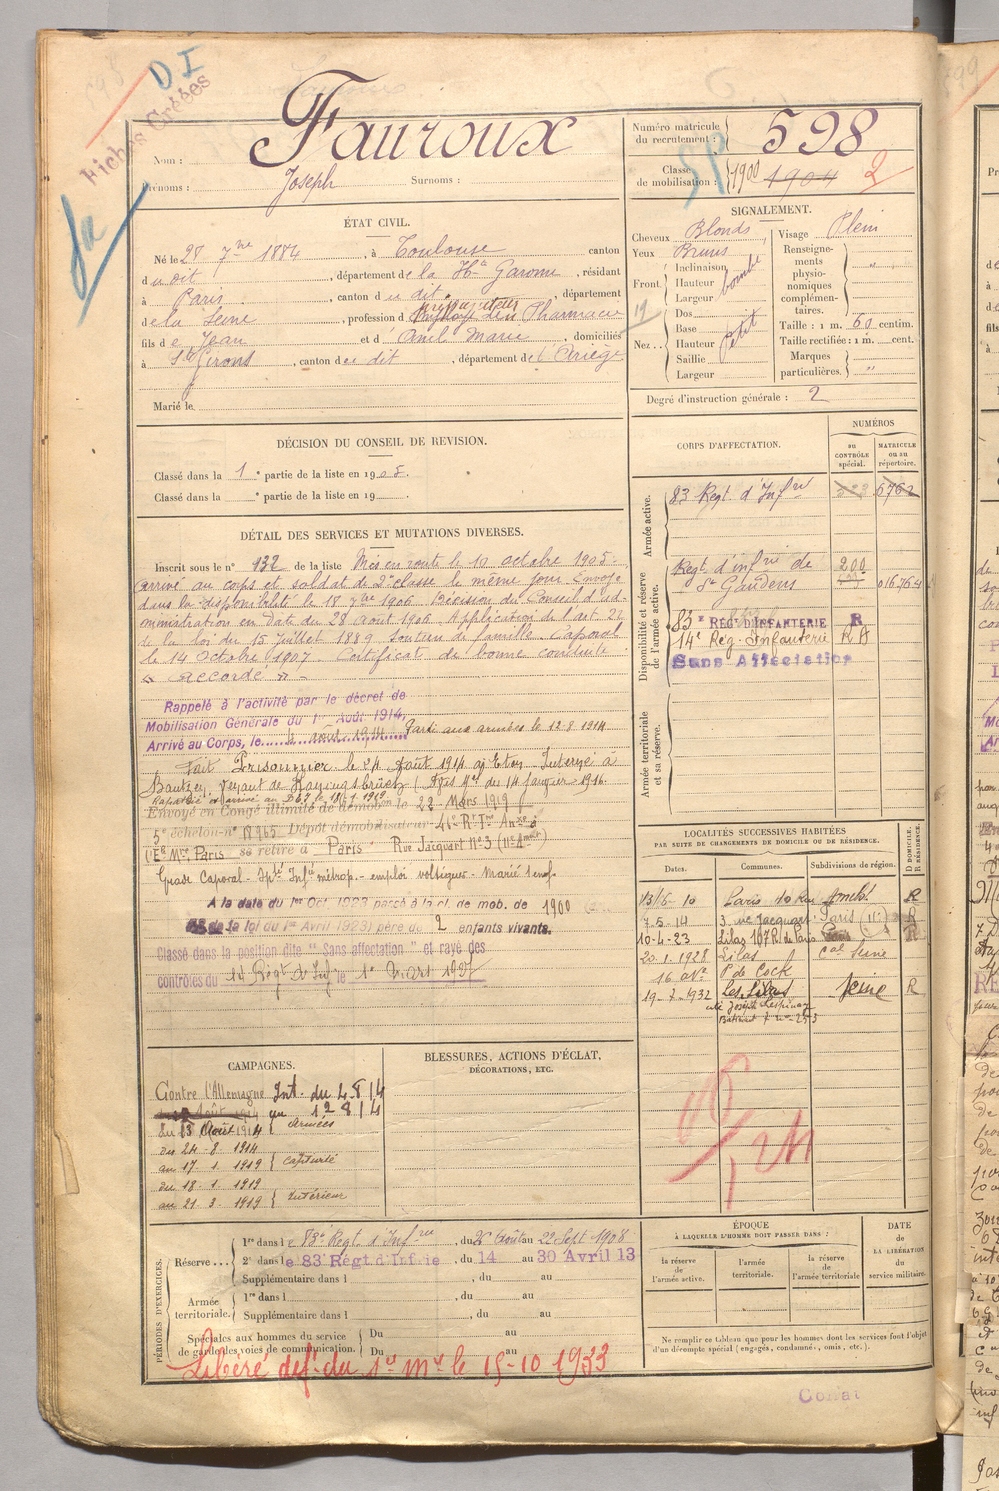 598
D I
Fiches Créées
Nom : Fauroux
Prénoms : Joseph Surnoms :
Numéro matricule du recrutement : 598
Classe de mobilisation : 1900 1904 2
ÉTAT CIVIL.
Né le 28 7bre 1884, à Toulouse canton
du dit, département de la Hte Garonne, résidant
à Paris, canton du dit, département
de la Seine, profession de préparateur en Pharmacie
fils de Jean et d Anel Marie, domiciliés
à St Girons, canton du dit, département de l'Ariège
Marié le
SIGNALEMENT.
Cheveux Blonds
Yeux Bruns
Front. Inclinaison
Hauteur bombé
Largeur
Nez... Dos
Base
Hauteur Petit
Saillie
Largeur
Visage Plein
Renseignements physionomiques complémentaires. "
Taille : 1 m. 60 centim.
Taille rectifiée : 1 m. cent.
Marques particulières. "
Degré d'instruction générale : 2
DÉCISION DU CONSEIL DE REVISION.
Classé dans la 1e partie de la liste en 1905.
Classé dans la e partie de la liste en 19
DÉTAIL DES SERVICES ET MUTATIONS DIVERSES.
Inscrit sous le n° 132 de la liste Mis en route le 10 octobre 1905.
arrivé au corps et soldat de 2e classe le même jour. Envoyé
dans la disponibilité le 18 7bre 1906. Décision du Conseil d'ad-
ministration en date du 28 août 1906. Application de l'art. 22
de la loi du 15 juillet 1889. Soutien de famille. Caporal
le 14 octobre 1907. Certificat de bonne conduite
« accordé »
Rappelé à l'activité par le décret de
Mobilisation Générale du 1er Août 1914,
Arrivé au Corps, le 4 août 1914. Parti aux armées le 12.8.1914
Fait Prisonnier le 24 Août 1914 Interné à
Bautzen, venant de Kœnigsbrück (Avis Mel du 14 Janvier 1916.
Rapatrié et arrivé au le 18.1.1919
Envoyé en Congé illimité de démobon le 22 Mars 1919
5e échelon n° Dépôt démobilisateur 46e Rt Ire Anxe à
Paris se retire à Paris Rue Jacquart N° 3 (11e Arrt)
Grade Caporal - Infie métrop. - emploi voltigeur - Marié 1 enf.
A la date du 1er Oct 1923 passé à la cl. de mob. de 1900
de la loi du 1er Avril 1923) père de 2 enfants vivants.
Classé dans la position dite "Sans affectation" et rayé des
contrôles du 14 Régt d'Inf le 1er Mars 1927
CORPS D'AFFECTATION.
NUMÉROS
au CONTRÔLE spécial.
MATRICULE ou au répertoire.
Armée active.
83 Régt d'Infrie 6762
Disponibilité et réserve de l'armée active.
Régt d'infrie de St Gaudens 200 01676
83e RÉGt D'INFANTERIE R
14e Rég. Infanterie R A
Sans Affectation
Armée territoriale et sa réserve.
LOCALITÉS SUCCESSIVES HABITÉES
PAR SUITE DE CHANGEMENTS DE DOMICILE OU DE RÉSIDENCE.
Dates. Communes. Subdivisions de région. D DOMICILE. R RÉSIDENCE.
13-6-10 Paris R
7.5.14 3 rue Jacquart Paris R
10-4-23 Lilas 107 R. de Paris R
20.1.1928 Lilas cal Seine
16 P. de Cock
19-7-1932 Les Lilas Seine R
cité Joseph Lespinay
Bâtiment 7 n° 253
CAMPAGNES.
Contre l'Allemagne Int. du 4.8.14
au 12 8 14
du 13 Août 1914 Armées
du 24-8-1914
au 17.1.1919 Captivité
du 18.1.1919
au 21.3.1919 Intérieur
BLESSURES, ACTIONS D'ÉCLAT,
DÉCORATIONS, ETC.
PÉRIODES D'EXERCICES.
Réserve... 1re dans le 83e Régt d'Infrie, du 26 Août au 22 Sept 1908
2e dans le 83 Régt d'Infrie, du 14 au 30 Avril 13
Supplémentaire dans l , du au
Armée territoriale. 1re dans l , du au
Supplémentaire dans l , du au
Spéciales aux hommes du service de garde des voies de communication. Du au
Du au
Libéré def. du le 15-10 1933
ÉPOQUE
À LAQUELLE L'HOMME DOIT PASSER DANS :
la réserve de l'armée active.
l'armée territoriale.
la réserve de l'armée territoriale
DATE de LA LIBÉRATION du service militaire.
Ne remplir ce tableau que pour les hommes dont les services font l'objet
d'un décompte spécial (engagés, condamnés, omis, etc.).